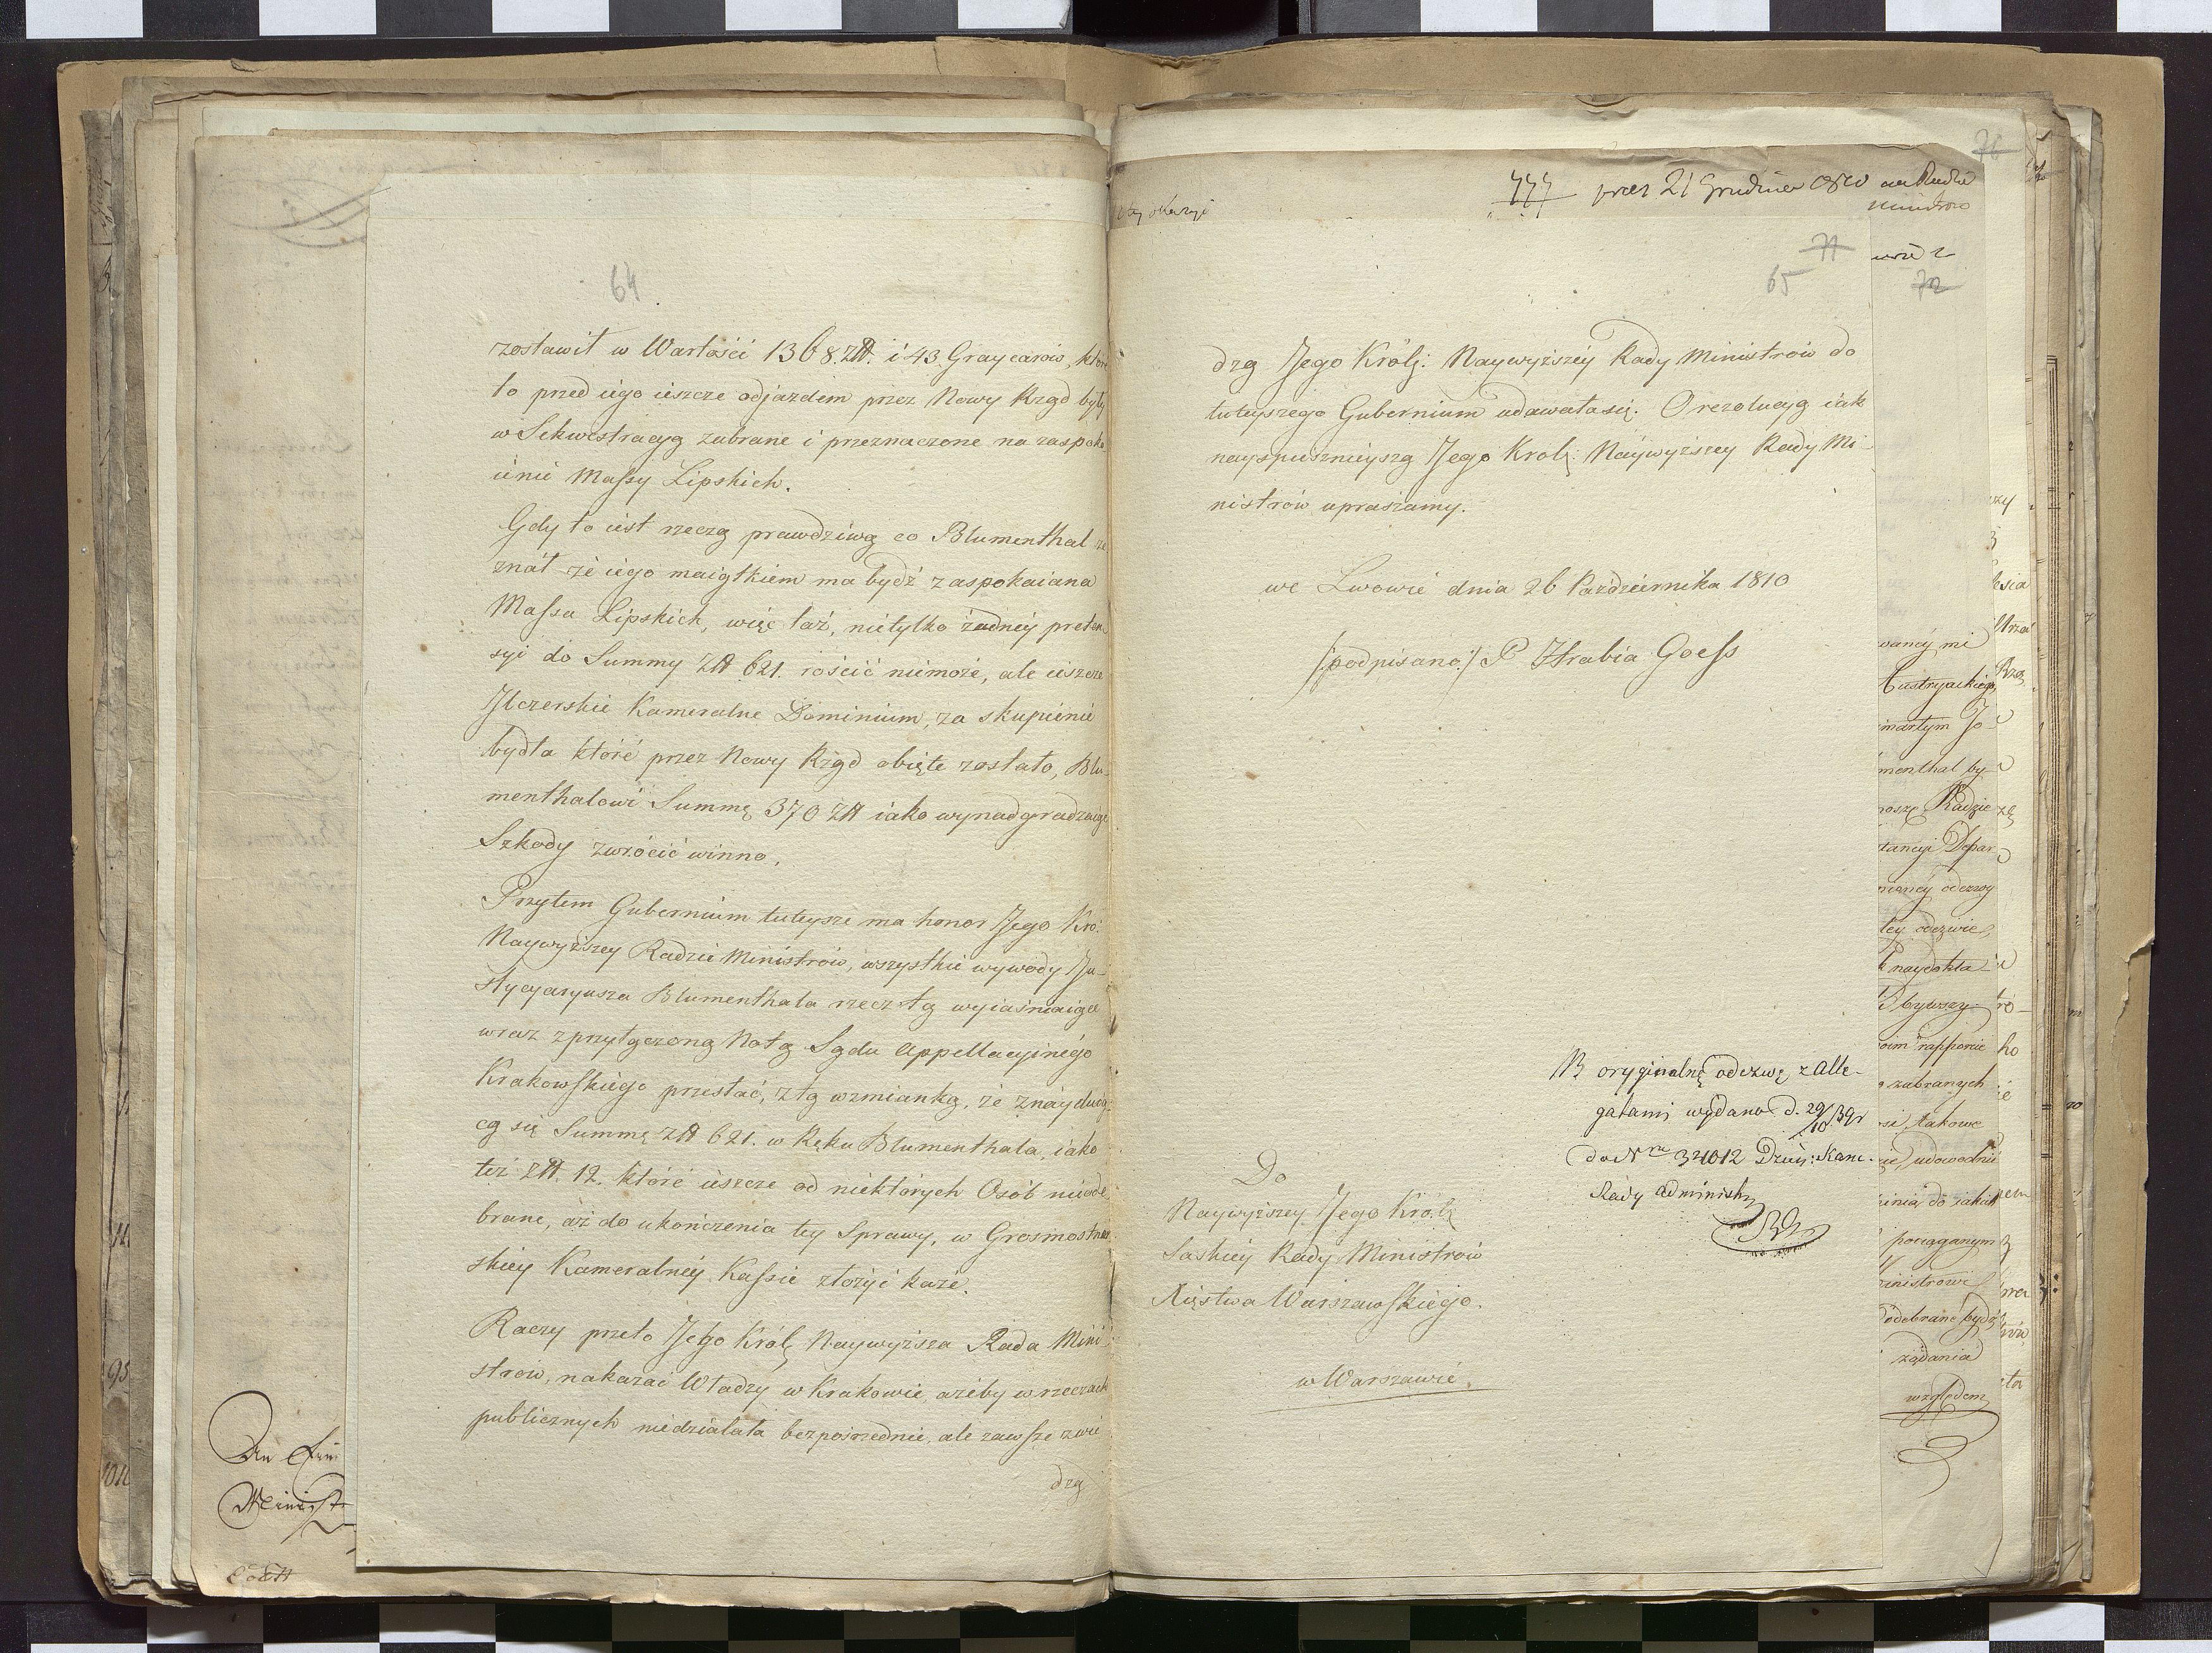 64
zostawił w Wartości 1368. Zł. i 43. Graycarów, które
to przed iego ieszcze odjazdem przez Nowy Rząd były
w Sekwestracyą zabrane i przeznaczone na zaspoko
ienie Massy Lipskich.
Gdy to iest rzeczą prawdziwą co Blumenthal ze
znał że iego maiątkiem ma bydź zaspokaiana
Massa Lipskich, więc taż, nietylko żadney preten
syi do Summy Zł 621. rościć niemoże, ale ieszcze
Jlczerskie Kameralne Dominium, za skupienie
bydła któré przez Nowy Rząd obięte zostało, Blu-
menthalowi Summę 370 Zł iako wynadgradzaią
Szkody zwrócić winno.
Przytem Gubernium tuteysze ma honor Jego Kró.
Naywyższey Radzie Ministrów, wszystkie wywody Ju-
stycyaryusza Blumenthala rzecz tą wyiaśniaiące
wraz z przyłączoną Notą Sądu Appellacyinégo
Krakowskiego przesłać, z tą wzmianką, że znayduią
cą się Summę Zł 621. w Ręku Blumenthala, iako
też Zł. 12. któré ieszcze od niektórych Osób nieode
brane, aż do ukończenia tey Sprawy, w Grosmostins
skiey Kameralnéy Kassie złożyć każe.
Raczy przeto Jego Król: Naywyższa Rada Mini
strów, nakazać Władzy w Krakowie, ażeby w rzeczach
publicznych niedziałała bezpośrednie, ale zawsze zwie
drzą
An
Minist
76
tey okazyi
777 przez 21 Grudnia 1810 na Radzie
Ministrów
71
65
72
drzą Jego Królj: Naywyższéy Rady Ministrów do
tuteyszego Gubernium udawała się. O rezolucyą iak
nayspieszniéyszą Jego Król: Naywyższey Rady Mi-
nistrów upraszamy.
we Lwowie dnia 26 Października 1810
/podpisano:/ P Hrabia Goess
NB oryginalną odezwę z Alle-
gatami wydano d. 29/10 139r
do Nru 34012 Dzien: Kanc.
Rady Administr
Do
Naywyższey Jego Król:
Saskiéy Rady Ministrów
Xięstwa Warszawskiego.
w Warszawie.
waney mi
Austryackiego,
menthal by-
Radzie
tancyi Depar
odezwy
tey odezwie,
naydokła
bywszy
rapporcie
zabranych
takowe
udowodnie
pociąganym
odebrane bydź
żądania
względem